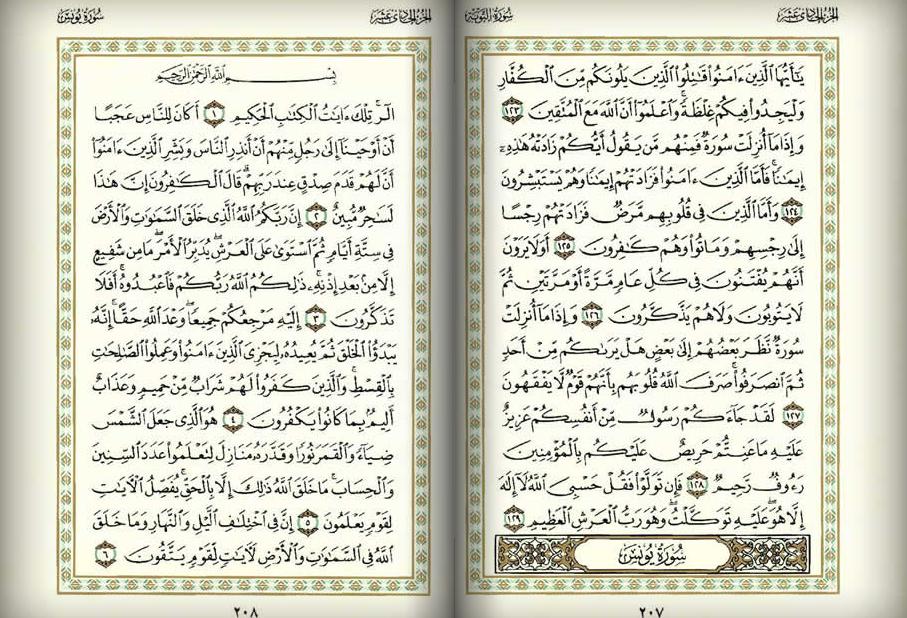 سُورَةُ التَّوْبَةِ
الجُزْءُ الحَادِى عَشَرَ
يَٰٓأَيُّهَا ٱلَّذِينَ ءَامَنُوا۟ قَٰتِلُوا۟ ٱلَّذِينَ يَلُونَكُم مِّنَ ٱلْكُفَّارِ
وَلْيَجِدُوا۟ فِيكُمْ غِلْظَةً ۚ وَٱعْلَمُوٓا۟ أَنَّ ٱللَّهَ مَعَ ٱلْمُتَّقِينَ ١٢٣
وَإِذَا مَآ أُنزِلَتْ سُورَةٌ فَمِنْهُم مَّن يَقُولُ أَيُّكُمْ زَادَتْهُ هَٰذِهِۦٓ
إِيمَٰنًا ۚ فَأَمَّا ٱلَّذِينَ ءَامَنُوا۟ فَزَادَتْهُمْ إِيمَٰنًا وَهُمْ يَسْتَبْشِرُونَ
١٢٤ وَأَمَّا ٱلَّذِينَ فِى قُلُوبِهِم مَّرَضٌ فَزَادَتْهُمْ رِجْسًا
إِلَىٰ رِجْسِهِمْ وَمَاتُوا۟ وَهُمْ كَٰفِرُونَ ١٢٥ أَوَلَا يَرَوْنَ
أَنَّهُمْ يُفْتَنُونَ فِى كُلِّ عَامٍ مَّرَّةً أَوْ مَرَّتَيْنِ ثُمَّ
لَا يَتُوبُونَ وَلَا هُمْ يَذَّكَّرُونَ ١٢٦ وَإِذَا مَآ أُنزِلَتْ
سُورَةٌ نَّظَرَ بَعْضُهُمْ إِلَىٰ بَعْضٍ هَلْ يَرَىٰكُم مِّنْ أَحَدٍ
ثُمَّ ٱنصَرَفُوا۟ ۚ صَرَفَ ٱللَّهُ قُلُوبَهُم بِأَنَّهُمْ قَوْمٌ لَّا يَفْقَهُونَ
١٢٧ لَقَدْ جَآءَكُمْ رَسُولٌ مِّنْ أَنفُسِكُمْ عَزِيزٌ
عَلَيْهِ مَا عَنِتُّمْ حَرِيصٌ عَلَيْكُم بِٱلْمُؤْمِنِينَ
رَءُوفٌ رَّحِيمٌ ١٢٨ فَإِن تَوَلَّوْا۟ فَقُلْ حَسْبِىَ ٱللَّهُ لَآ إِلَٰهَ
إِلَّا هُوَ ۖ عَلَيْهِ تَوَكَّلْتُ ۖ وَهُوَ رَبُّ ٱلْعَرْشِ ٱلْعَظِيمِ ١٢٩
سُورَةُ يُونُسَ
٢٠٧
الجُزْءُ الحَادِى عَشَرَ
سُورَةُ يُونُسَ
بِسْمِ ٱللَّهِ ٱلرَّحْمَٰنِ ٱلرَّحِيمِ
الٓر ۚ تِلْكَ ءَايَٰتُ ٱلْكِتَٰبِ ٱلْحَكِيمِ ١ أَكَانَ لِلنَّاسِ عَجَبًا
أَنْ أَوْحَيْنَآ إِلَىٰ رَجُلٍ مِّنْهُمْ أَنْ أَنذِرِ ٱلنَّاسَ وَبَشِّرِ ٱلَّذِينَ ءَامَنُوٓا۟
أَنَّ لَهُمْ قَدَمَ صِدْقٍ عِندَ رَبِّهِمْ ۗ قَالَ ٱلْكَٰفِرُونَ إِنَّ هَٰذَا
لَسَٰحِرٌ مُّبِينٌ ٢ إِنَّ رَبَّكُمُ ٱللَّهُ ٱلَّذِى خَلَقَ ٱلسَّمَٰوَٰتِ وَٱلْأَرْضَ
فِى سِتَّةِ أَيَّامٍ ثُمَّ ٱسْتَوَىٰ عَلَى ٱلْعَرْشِ ۖ يُدَبِّرُ ٱلْأَمْرَ ۖ مَا مِن شَفِيعٍ
إِلَّا مِنۢ بَعْدِ إِذْنِهِۦ ۚ ذَٰلِكُمُ ٱللَّهُ رَبُّكُمْ فَٱعْبُدُوهُ ۚ أَفَلَا
تَذَكَّرُونَ ٣ إِلَيْهِ مَرْجِعُكُمْ جَمِيعًا ۖ وَعْدَ ٱللَّهِ حَقًّا ۚ إِنَّهُۥ
يَبْدَؤُا۟ ٱلْخَلْقَ ثُمَّ يُعِيدُهُۥ لِيَجْزِىَ ٱلَّذِينَ ءَامَنُوا۟ وَعَمِلُوا۟ ٱلصَّٰلِحَٰتِ
بِٱلْقِسْطِ ۚ وَٱلَّذِينَ كَفَرُوا۟ لَهُمْ شَرَابٌ مِّنْ حَمِيمٍ وَعَذَابٌ
أَلِيمٌۢ بِمَا كَانُوا۟ يَكْفُرُونَ ٤ هُوَ ٱلَّذِى جَعَلَ ٱلشَّمْسَ
ضِيَآءً وَٱلْقَمَرَ نُورًا وَقَدَّرَهُۥ مَنَازِلَ لِتَعْلَمُوا۟ عَدَدَ ٱلسِّنِينَ
وَٱلْحِسَابَ ۚ مَا خَلَقَ ٱللَّهُ ذَٰلِكَ إِلَّا بِٱلْحَقِّ ۚ يُفَصِّلُ ٱلْءَايَٰتِ
لِقَوْمٍ يَعْلَمُونَ ٥ إِنَّ فِى ٱخْتِلَٰفِ ٱلَّيْلِ وَٱلنَّهَارِ وَمَا خَلَقَ
ٱللَّهُ فِى ٱلسَّمَٰوَٰتِ وَٱلْأَرْضِ لَءَايَٰتٍ لِّقَوْمٍ يَتَّقُونَ ٦
٢٠٨